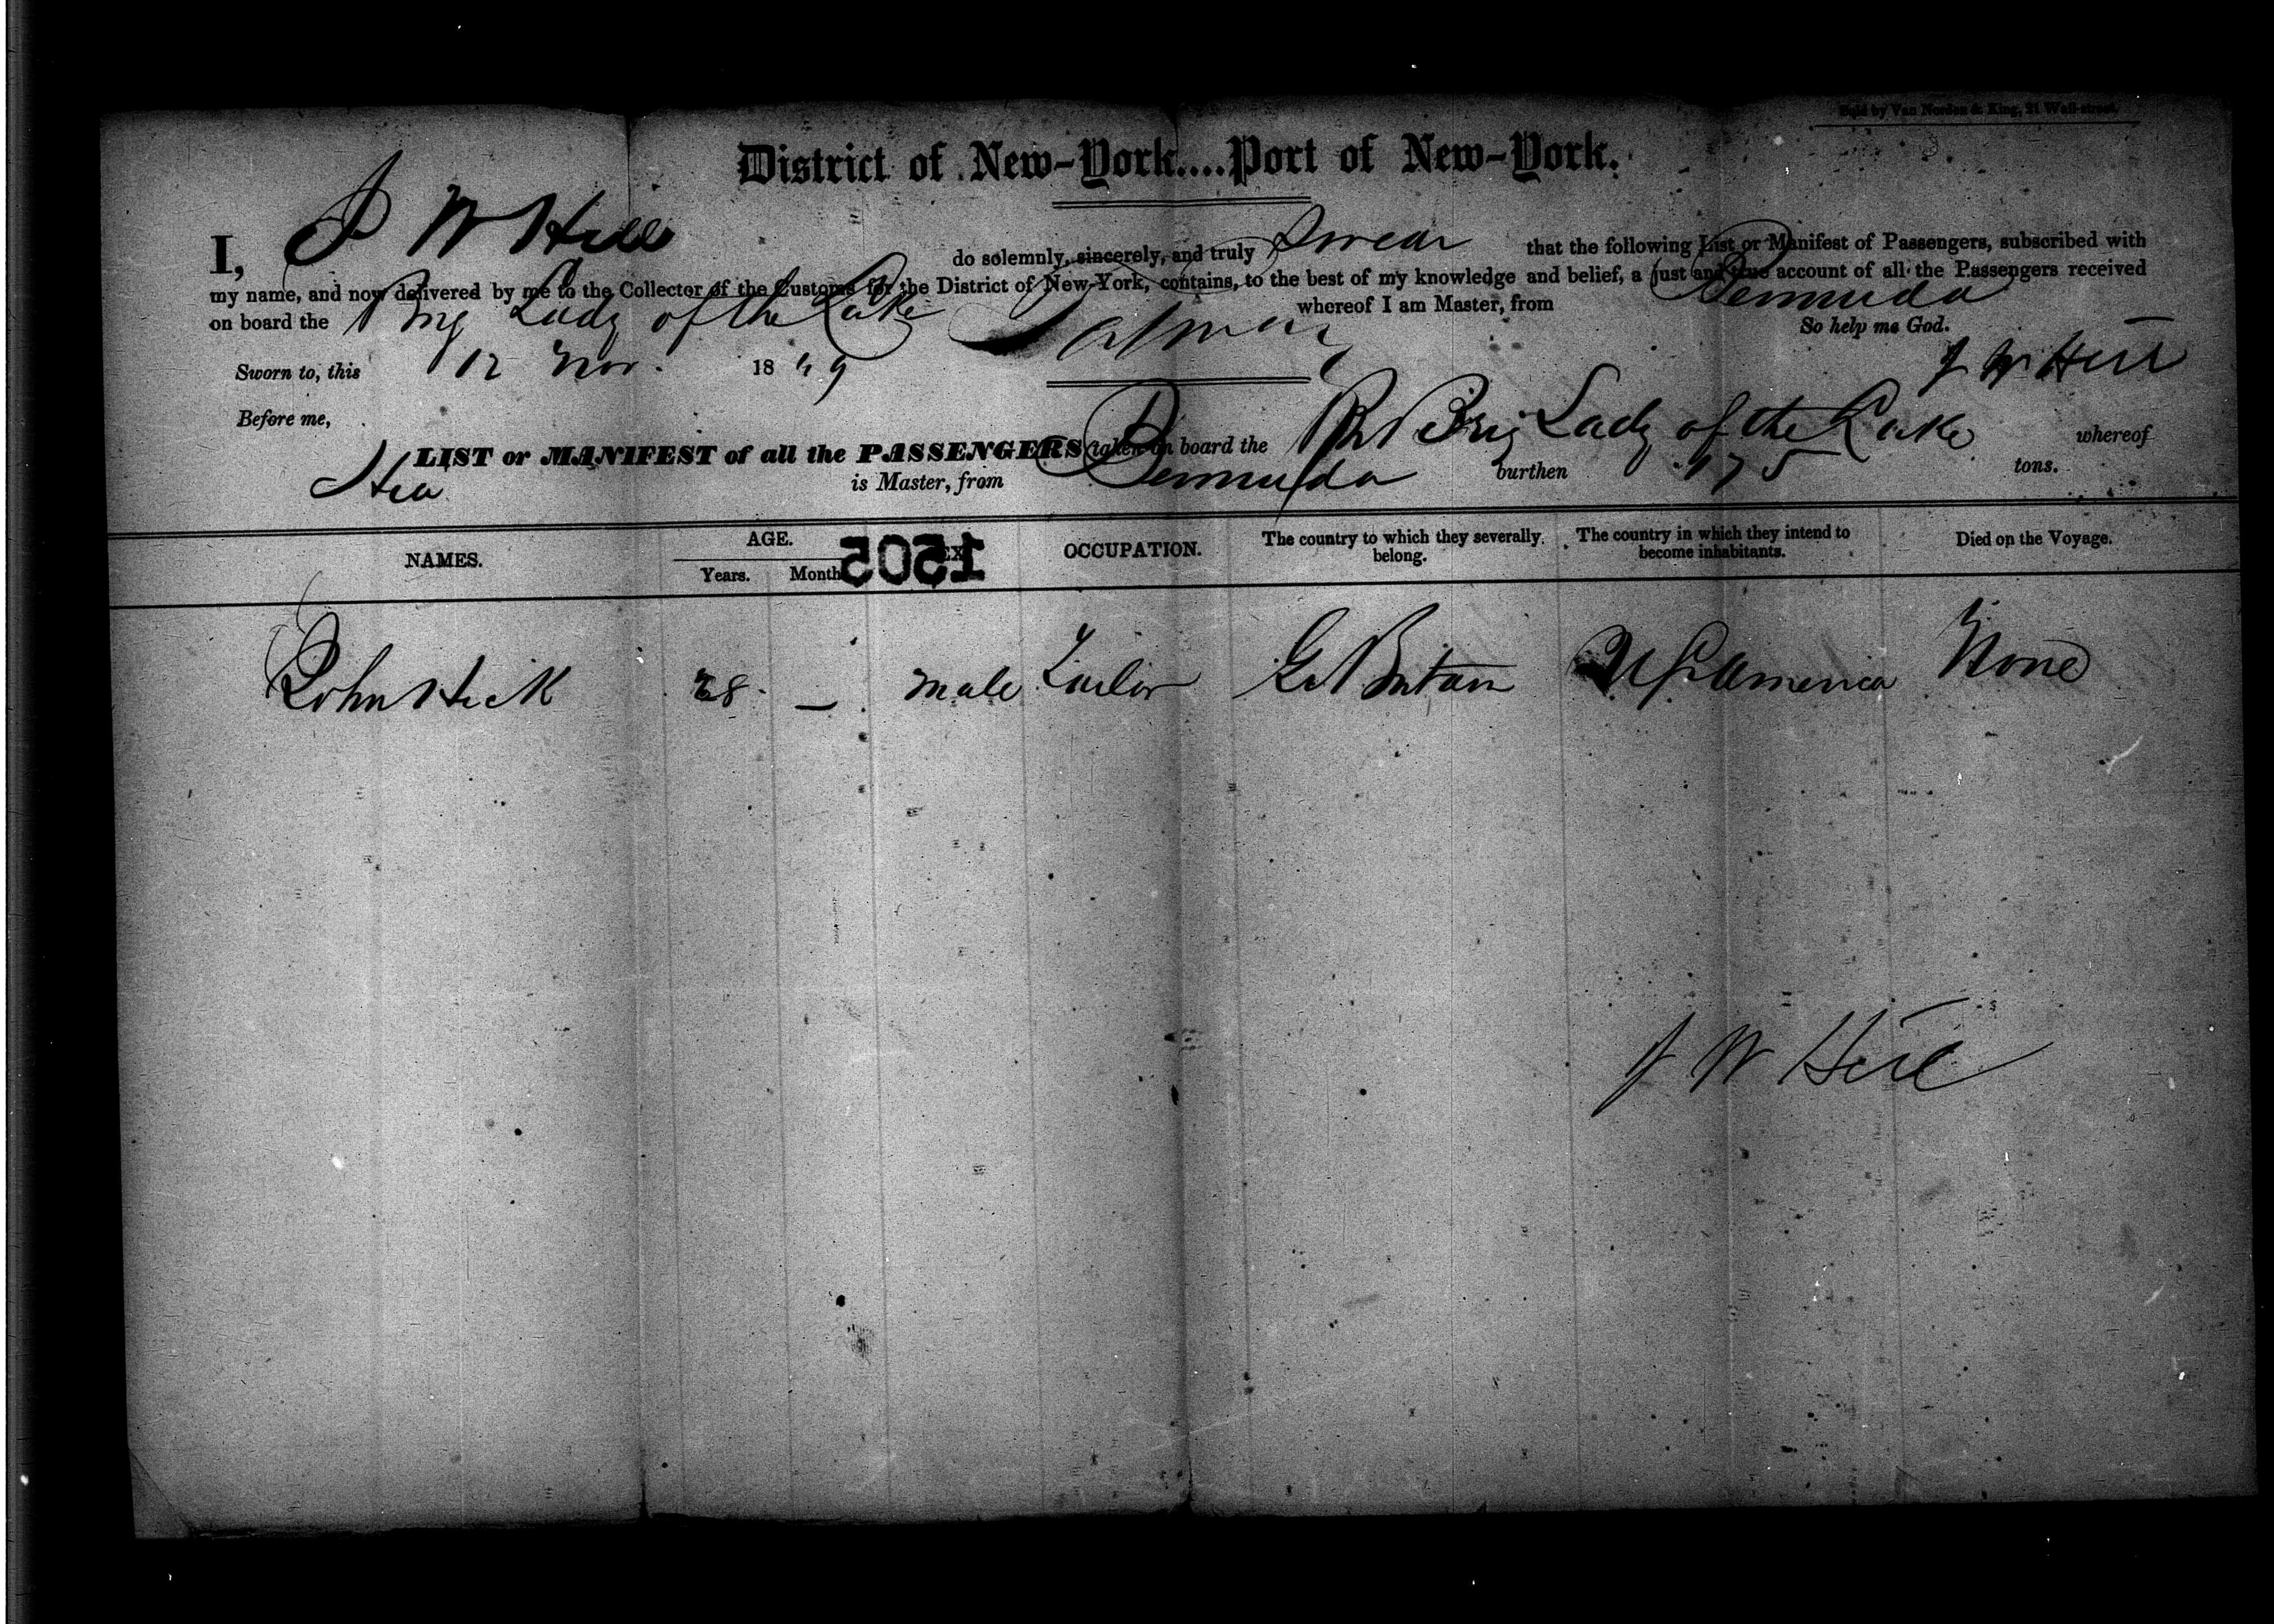 Sold by Van Norden & King, 21 Wall-street.
District of New-York....Port of New-York.
I, J W Hill do solemnly, sincerely, and truly Swear that the following List or Manifest of Passengers, subscribed with
my name, and now delivered by me to the Collector of the Customs for the District of New-York, contains, to the best of my knowledge and belief, a just and true account of all the Passengers received
on board the Brig Lady of the Lake whereof I am Master, from Bermuda
So help me God.
Sworn to, this 12 Nov. 1849 J W Hill
Before me,
LIST or MANIFEST of all the PASSENGERS taken on board the Br Brig Lady of the Lake whereof
is Master, from Bermuda burthen 175 tons.
NAMES. AGE. Years. Months SEX OCCUPATION. The country to which they severally belong. The country in which they intend to become inhabitants. Died on the Voyage.
1505
John 28 — male Tailor Gt Britain US America None
J W Hill